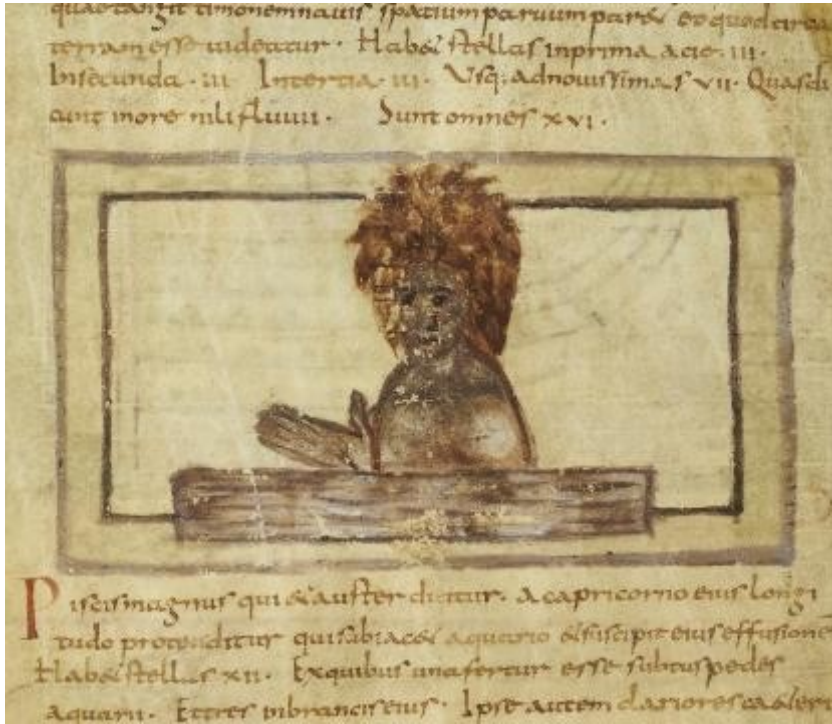 quae tangit timonem nauis spatium paruum par& eo quod circa
terram esse uideatur. Hab& stellas in prima acie. III.
In secunda. III In tertia. III. Usq; ad nouissimas VII. Quas di
cunt more nili fluuii. Sunt omnes XVI.
Piscis magnus qui & auster dicitur. a capricorno eius longi
tudo protenditur qui subiac& aquario & suscipit eius effusionē
Hab& stellas XII. Ex quibus una fertur esse subtus pedes
aquarii. Et tres in brancis eius. Ipse autem clariores